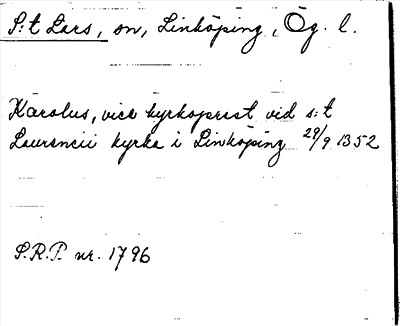 S:t Lars, sn, Linköping, Ög. l.
Karolus, vice kyrkoprest vid s:t
Laurencii kyrka i Linköping 29/9 1352
S.R.P. nr. 1796